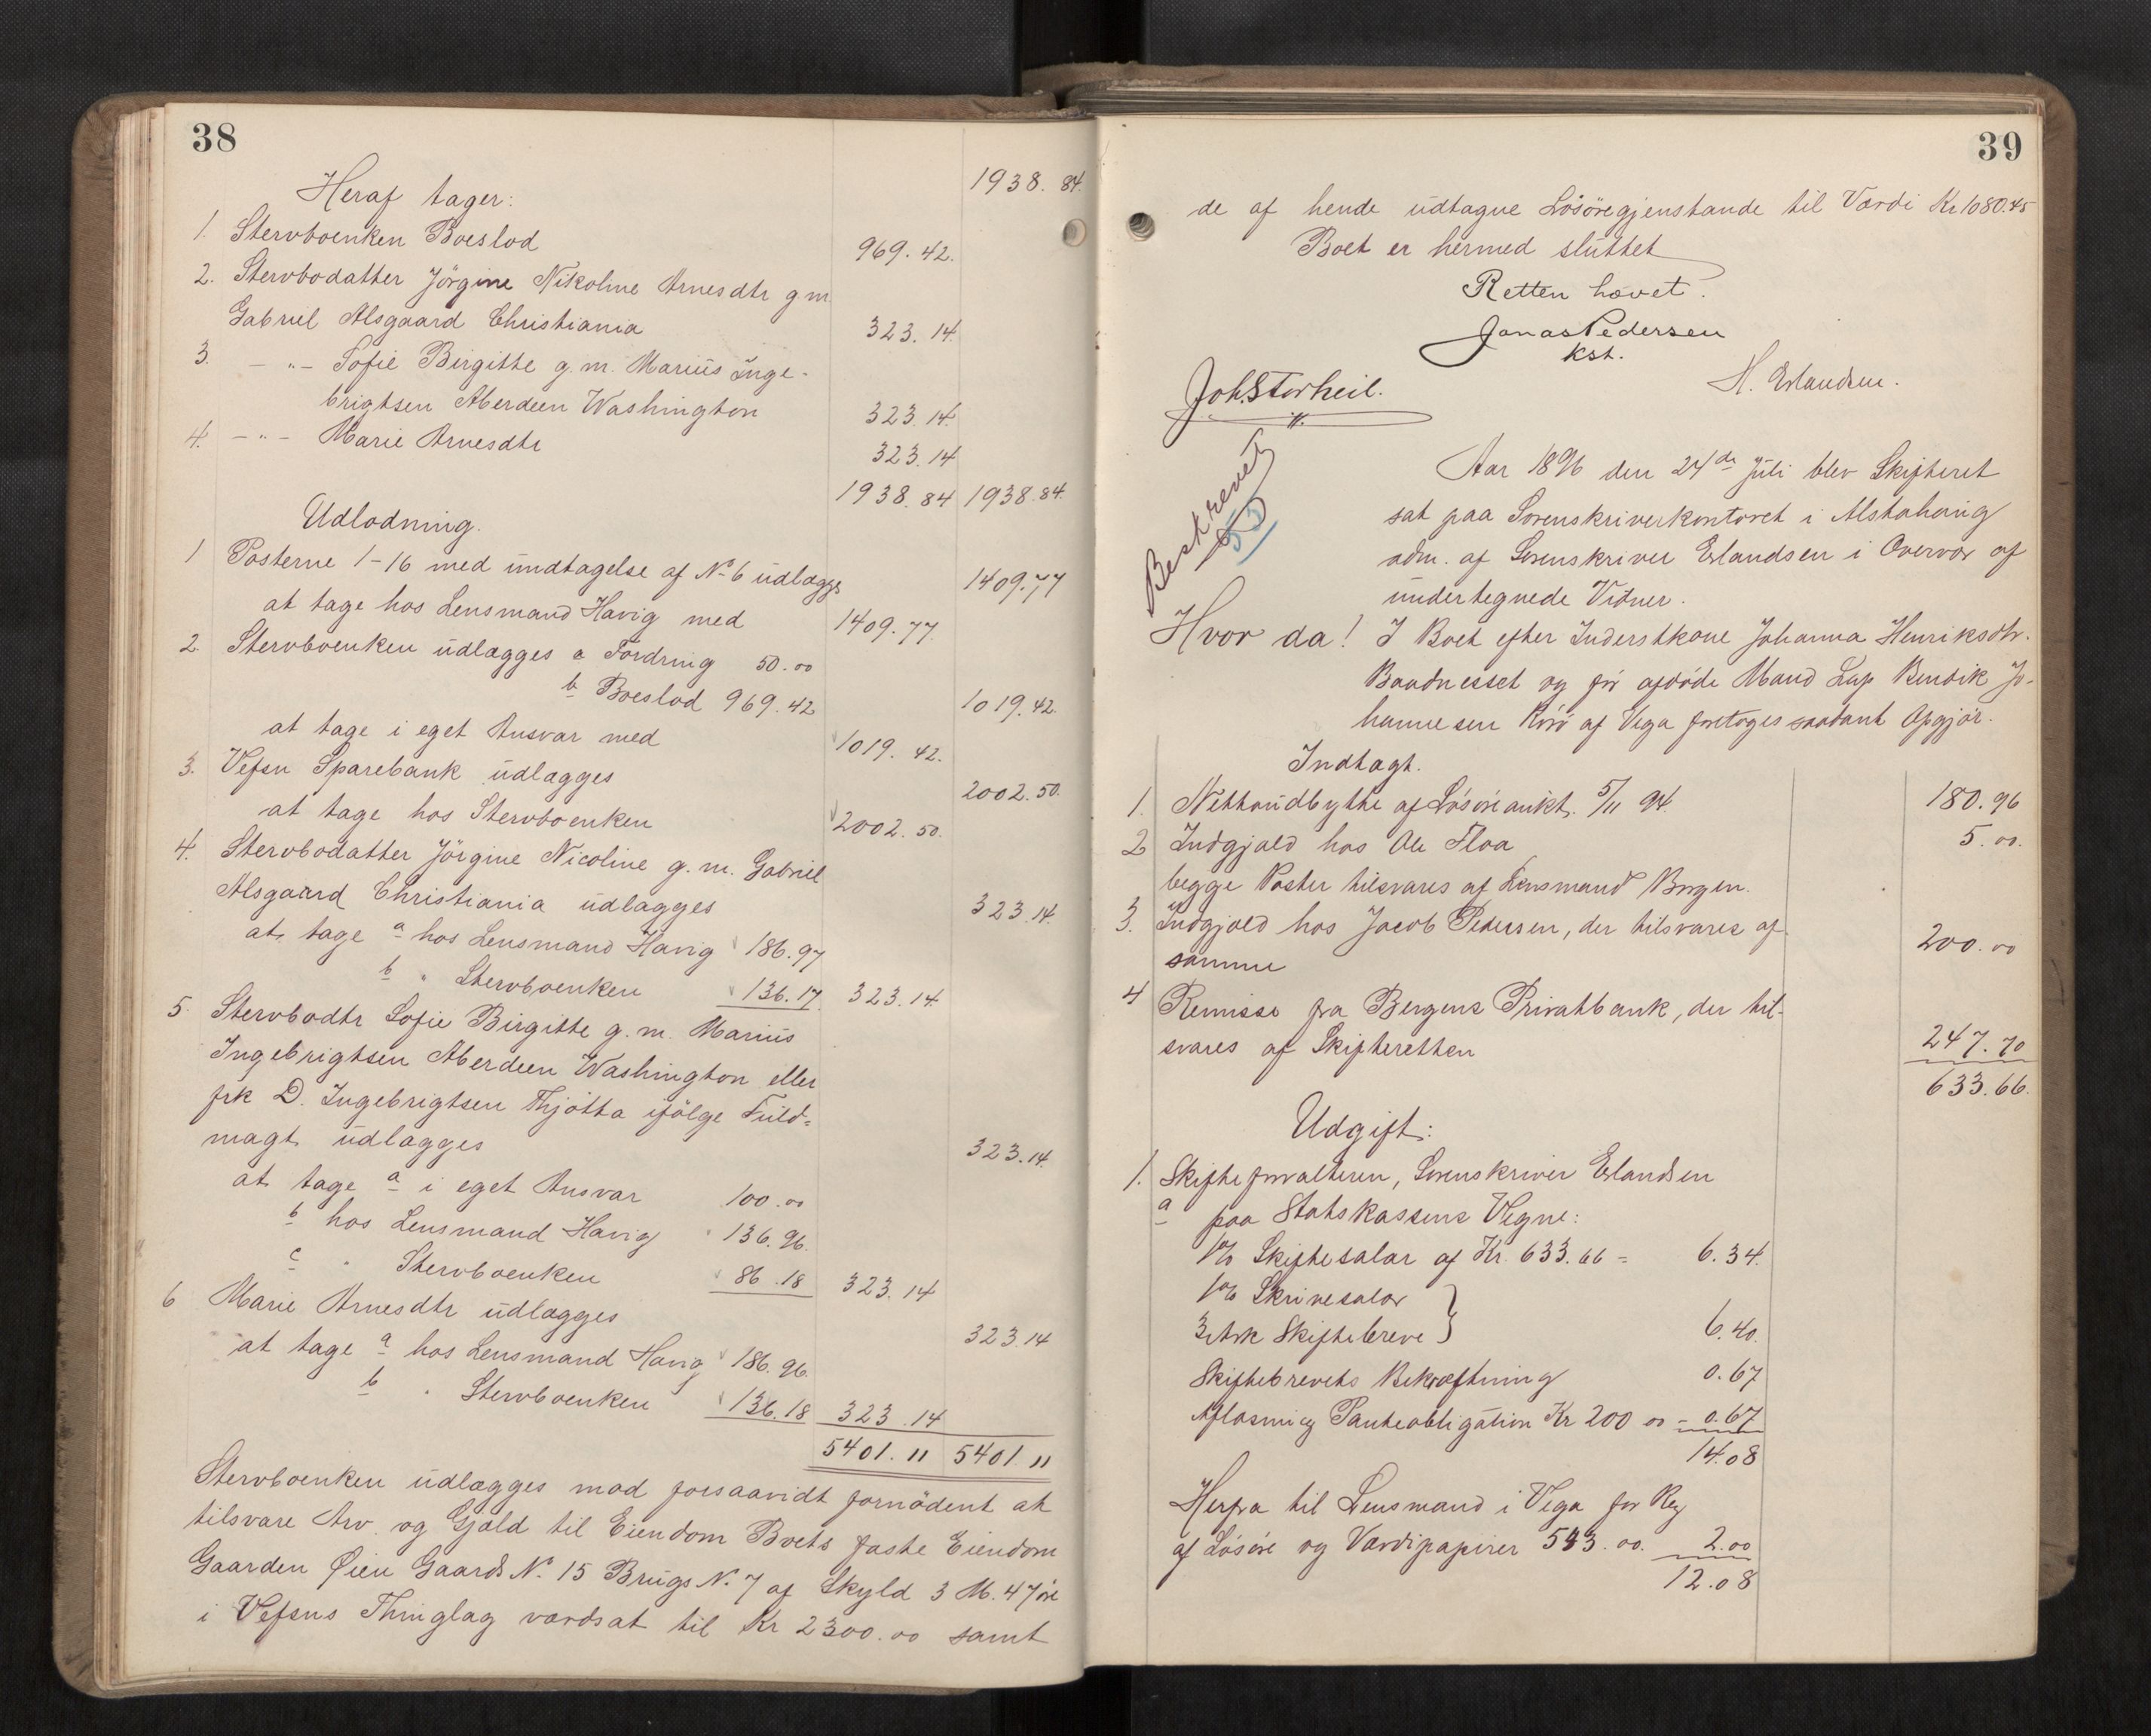 38
1938.84.
Heraf tager:
1. Stervboenken Boeslod 969.42.
2. Stervbodatter Jörgine Nikoline Arnesdtr g m
Gabriel Alsgaard Christiania 323.14.
3. — " — Sofie Birgitte g. m. Marius Inge-
brigtsen Aberdeen Washington 323.14.
4. — " — Marie Arnesdtr 323.14
1938.84 1938.84.
Udlodning.
1 Posterne 1-16 med undtagelse af No 6 udlægges 1409.77
at tage hos Lensmand Havig med 1409.77.
2. Stervboenken udlægges a Fordring 50.00
b Boeslod 969.42 1019.42.
at tage i eget Ansvar med 1019.42.
3. Vefsn Sparebank udlægges 2002.50.
at tage hos Stervboenken 2002.50.
4. Stervbodatter Jörgine Nicoline g. m. Gabriel
Alsgaard Christiania udlægges 323.14.
at tage a hos Lensmand Havig 186.97
b " Stervboenken 136.17. 323.14.
5. Stervbodtr Sofie Birgitte g. m. Marius
Ingebrigtsen Aberdeen Washington eller
frk D. Ingebrigtsen Thjötta ifölge Fuld-
magt udlægges 323.14.
at tage a i eget Ansvar 100.00
b hos Lensmand Havig 136.96.
c " Stervboenken 86.18 323.14
6 Marie Arnesdtr udlægges 323.14
at tage a hos Lensmand Havig 186.96.
b " Stervboenken 136.18 323.14
5401.11 5401 11
Stervboenken udlægges mod forsaavidt fornödent at
tilsvare Arv og Gjæld til Eiendom Boets faste Eiendom
Gaarden Øien Gaards No. 15 Brugs No. 7 af Skyld 3 M. 47 öre
i Vefsns Thinglag værdsat til Kr 2300.00 samt
39
de af hende udtagne Lösöregjenstande til Værdi Kr 1080.45
Boet er hermed sluttet
Retten hævet.
Jonas Pedersen
kst.
H. Erlandsen.
Joh. Storheil.
Beskrevet
53
Aar 1896 den 24de Juli blev Skifteret
sat paa Sorenskriverkontoret i Alstahaug
adm. af Sorenskriver Erlandsen i Overvær af
undertegnede Vidner.
Hvor da! I Boet efter Inderstkone Johanna Henriksdtr.
Baadnesset og för afdöde Mand Lap Bendik Jo-
hannesen Rörö af Vega foretoges saadant Opgjör.
Indtægt.
1. Nettoudbytte af Lösöreaukt. 5/11 94. 180.96
2 Indgjæld hos Ole Floa 5.00.
begge Poster tilsvares af Lensmand Borgen.
3. Indgjæld hos Jacob Pedersen, der tilsvares af
samme 200.00
4 Remisse fra Bergens Privatbank, der til-
svares af Skifteretten 247.70
633.66.
Udgift:
1. Skifteforvalteren, Sorenskriver Erlandsen
a paa Statskassens Vegne:
1% Skiftesalær af Kr. 633.66 = 6.34.
1% Skrivesalær }
3 Ark Skiftebreve } 6.40.
Skiftebrevets Bekræftning 0.67
Aflæsning Panteobligation Kr 200 00 - 0.67
14.08
Herfra til Lensmand i Vega for Reg
af Lösöre og Værdipapirer 543.00. 2.00
12.08